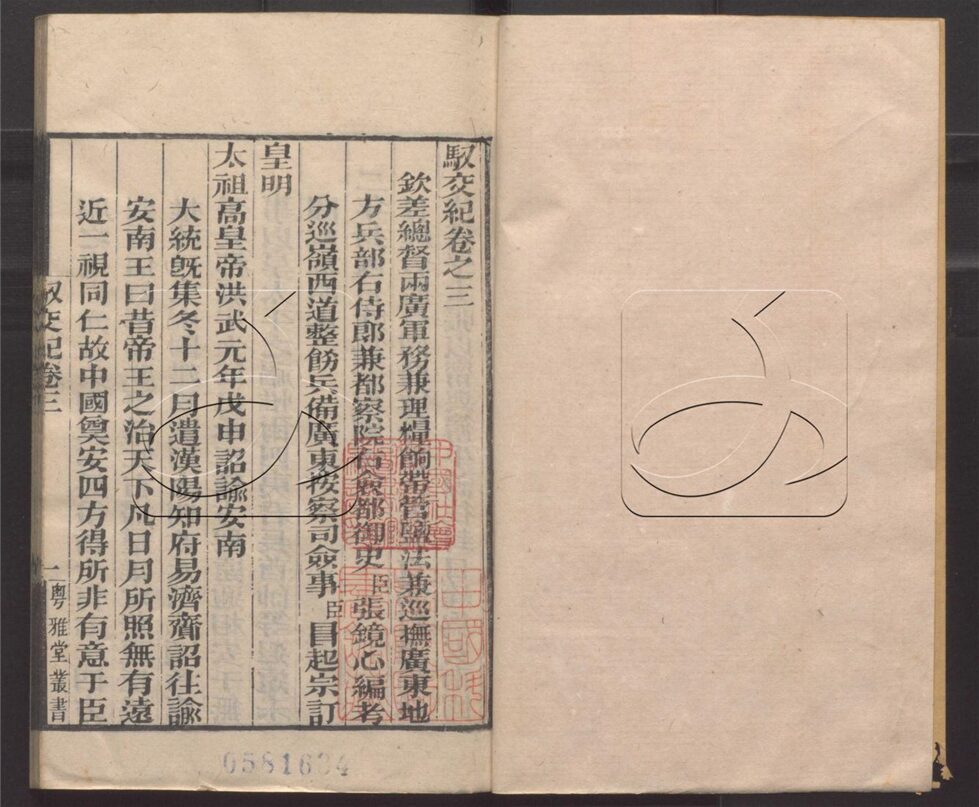 馭交紀卷之三
欽差總督兩廣軍務兼理糧餉帶管鹽法兼巡撫廣東地
方兵部右侍郎兼都察院右僉都御史臣張鏡心編考
分巡嶺西道整飭兵備廣東按察司僉事臣目起宗訂
皇明
太祖高皇帝洪武元年戊申詔諭安南
大統旣集冬十二月遣漢陽知府易濟齎詔往諭
安南王曰昔帝王之治天下凡日月所照無有遠
近一視同仁故中國奠安四方得所非有意于臣
馭交紀卷三
一
粵雅堂叢書
0581634